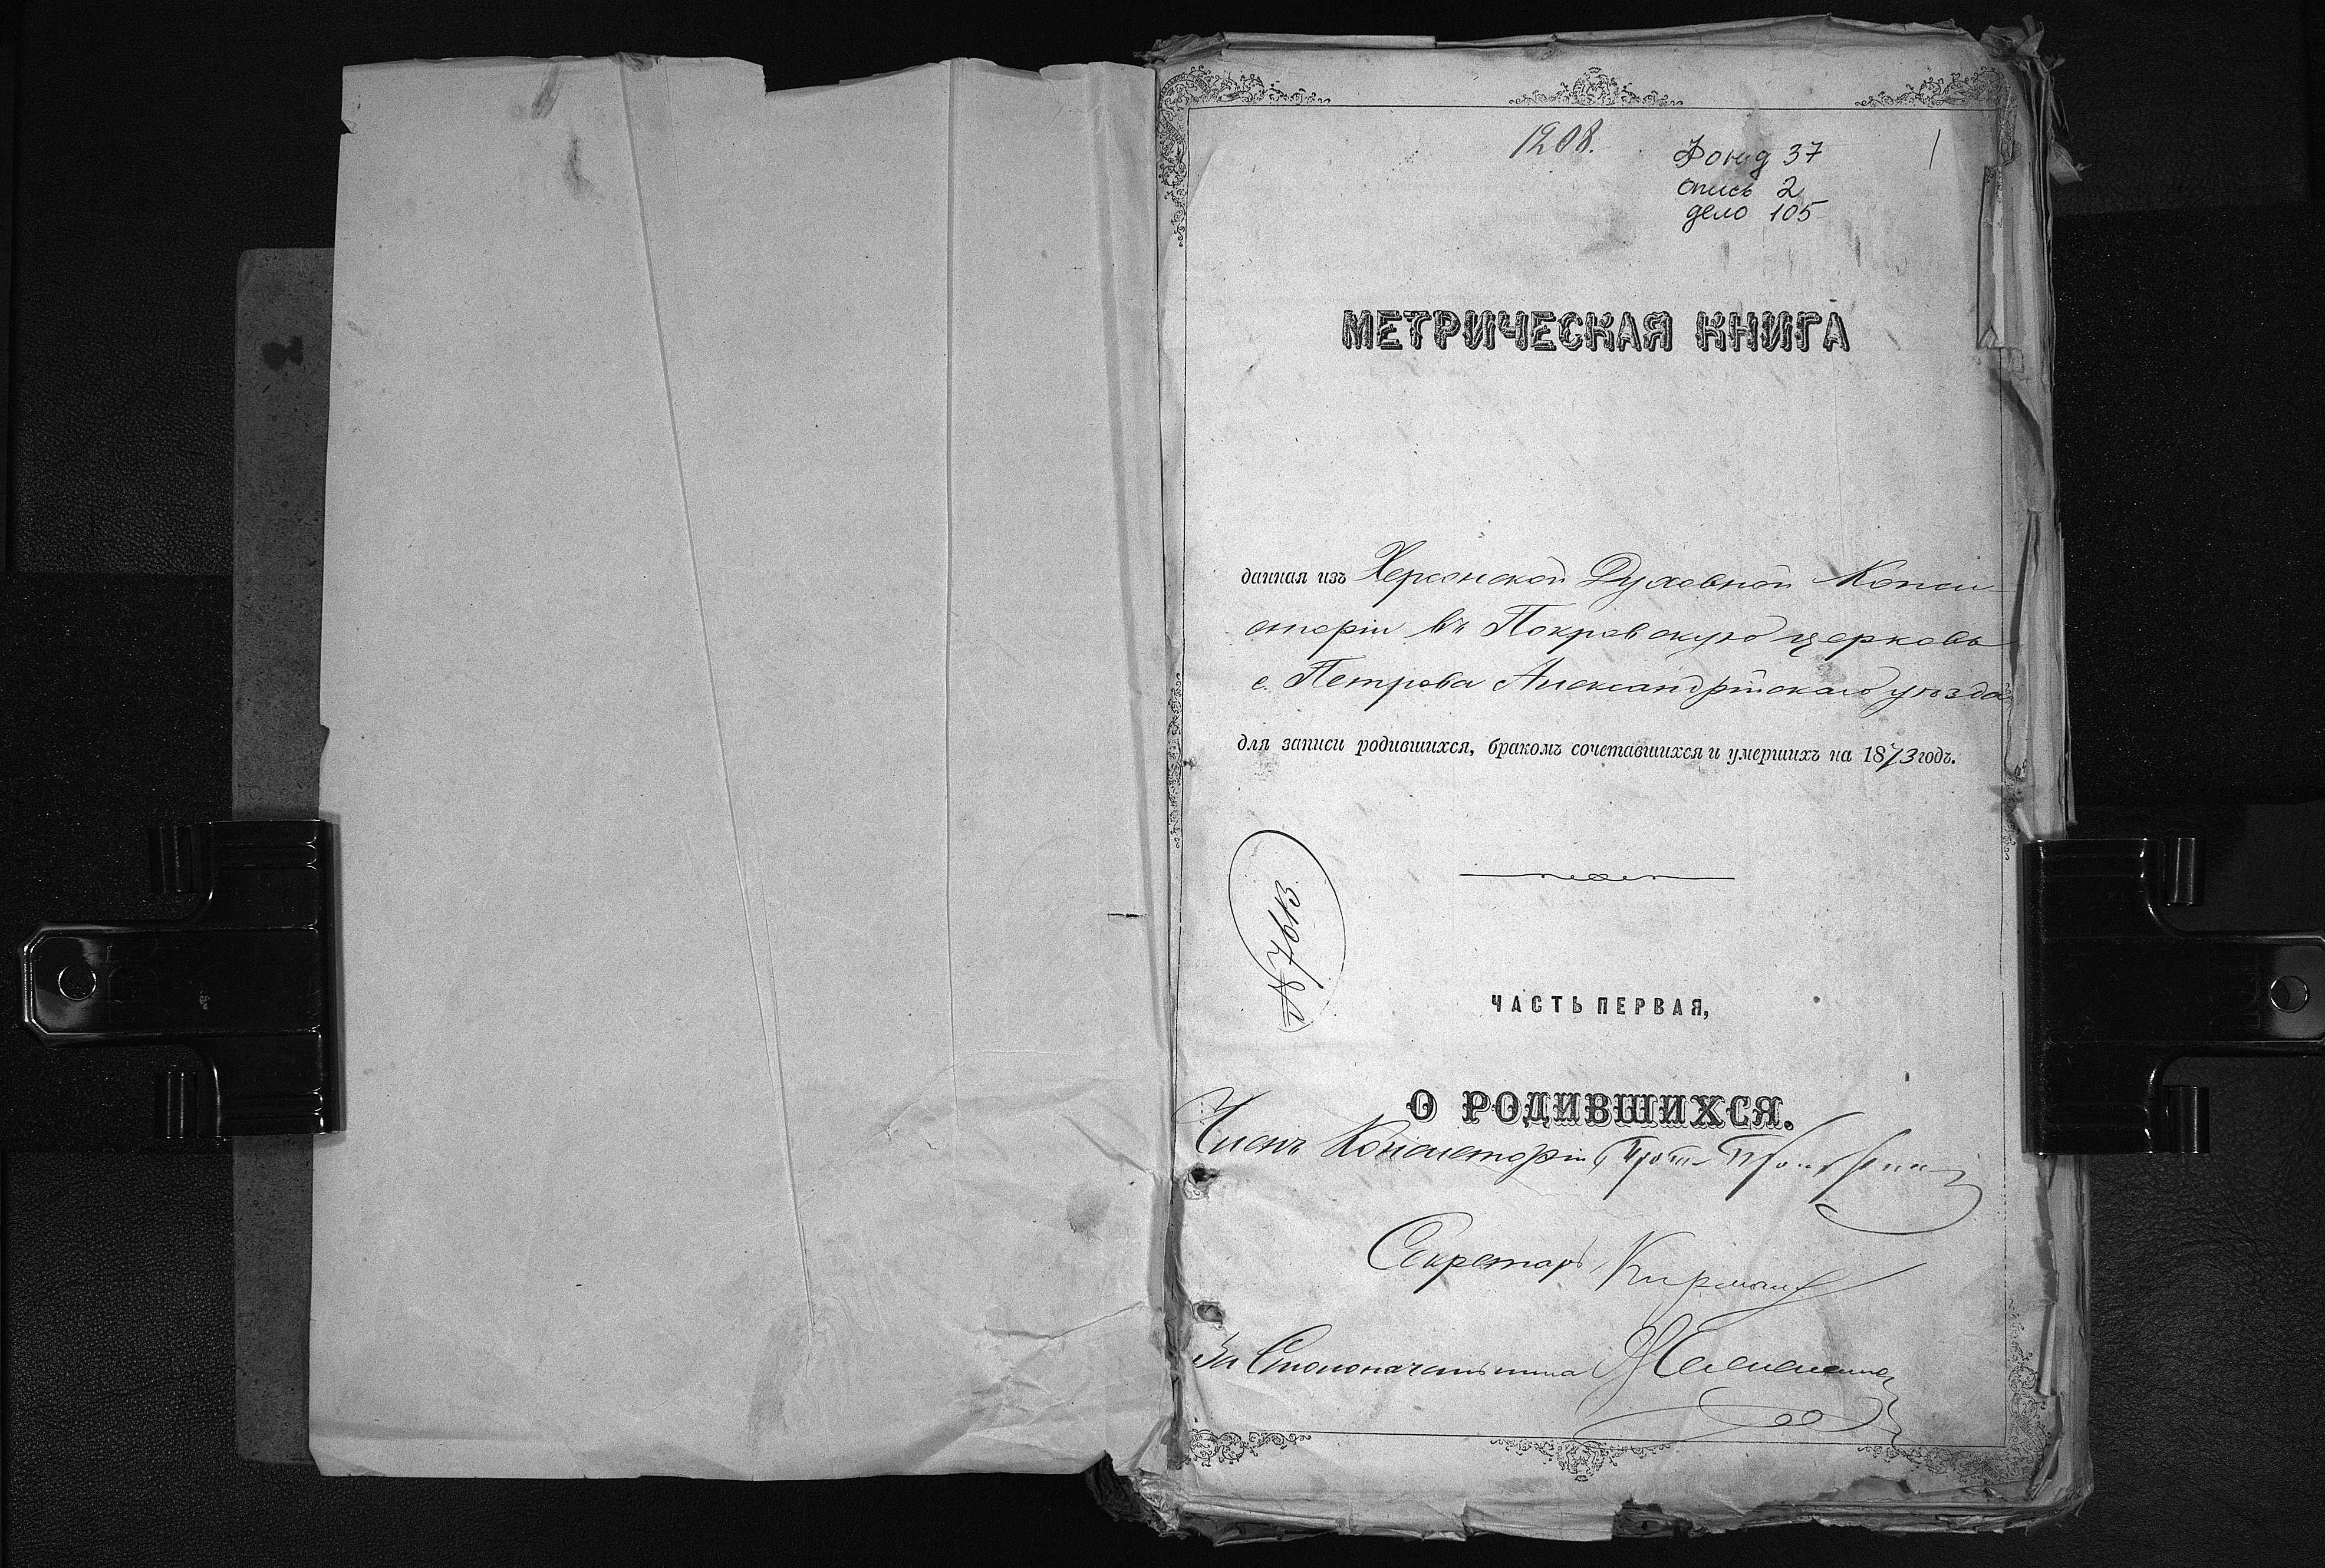 1208.
1
Фонд 37
опись 2
дело 105
МЕТРИЧЕСКАЯ КНИГА
данная изъ Херсонской Духовной Конси-
сторіи въ Покровскую церковь
с. Петрова Александрійскаго уѣзда
для записи родившихся, бракомъ сочетавшихся и умершихъ на 1873 годъ.
№ 7613
ЧАСТЬ ПЕРВАЯ,
О РОДИВШИХСЯ.
Членъ Консисторіи
Секретарь
За Столоначальника